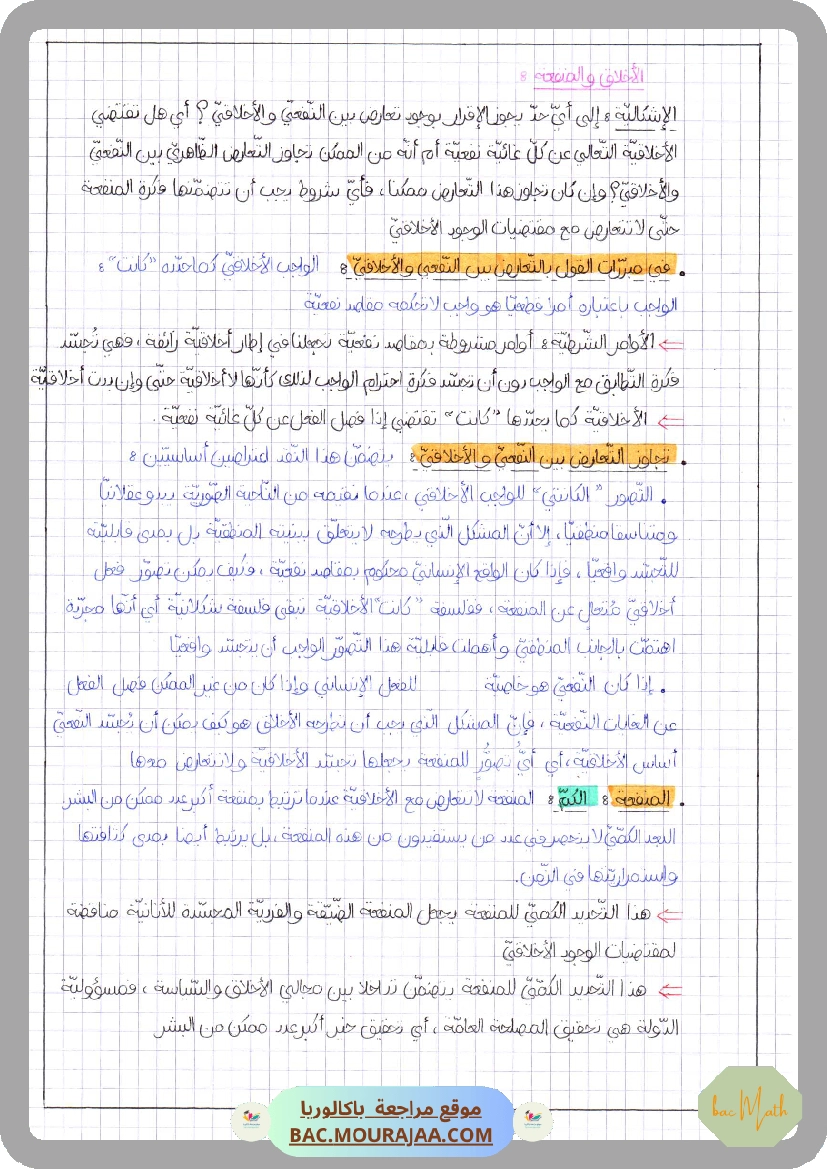 الأخلاق والمنفعة :
الإشكاليّة : إلى أيّ حدّ يجوز الإقرار بوجود تعارض بين النّفعيّ والأخلاقيّ ؟ أي هل تقتضي
الأخلاقيّة التّعالي عن كلّ غائيّة نفعيّة أم أنّه من الممكن تجاوز التّعارض الظّاهريّ بين النّفعيّ
والأخلاقيّ؟ وإن كان تجاوز هذا التّعارض ممكنا ، فأيّ شروط يجب أن تتضمّنها فكرة المنفعة
حتّى لا تتعارض مع مقتضيات الوجود الأخلاقيّ
• في مبرّرات القول بالتّعارض بين النّفعي والأخلاقيّ : الواجب الأخلاقيّ كما حدّده "كانت" :
الواجب باعتباره أمرا قطعيّا هو واجب لا تحكمه مقاصد نفعيّة
⇐ الأوامر الشّرطيّة : أوامر مشروطة بمقاصد نفعيّة تجعلنا في إطار أخلاقيّة زائفة ، فهي تُجسّد
فكرة التّطابق مع الواجب دون أن تجسّد فكرة احترام الواجب لذلك كأنّها لا أخلاقيّة حتّى وإن بدت أخلاقيّة
⇐ الأخلاقيّة كما يحدّدها "كانت" تقتضي إذا فصل الفعل عن كلّ غائيّة نفعيّة .
• تجاوز التّعارض بين النّفعيّ و الأخلاقيّ : يتضمّن هذا النّقد اعتراضين أساسيّتين :
• التّصور "الكانتي" للواجب الأخلاقي ، عندما نقيّمه من النّاحية الصّوريّة يبدو عقلانيّا
ومتناسقا منطقيّا ، إلا أنّ المشكل الّذي يطرحه لا يتعلّق ببنيته المنطقيّة بل بمدى قابليّته
للتّجسّد واقعيّا ، فإذا كان الواقع الإنسانيّ محكوم بمقاصد نفعيّة ، فكيف يمكن تصوّر فعل
أخلاقيّ مُتعالٍ عن المنفعة ، ففلسفة "كانت" الأخلاقيّة تبقى فلسفة شكلانيّة أي أنّها مجرّدة
اهتمّت بالجانب المنطقيّ وأهملت قابليّة هذا التّصوّر الواجب أن يتجسّد واقعيّا
• إذا كان النّفعيّ هو خاصيّة للفعل الإنساني وإذا كان من غير الممكن فصل الفعل
عن الغايات النّفعيّة ، فإنّ المشكل الّذي يجب أن تطرحه الأخلاق هو كيف يمكن أن يُجسّد النّفعيّ
أساس الأخلاقيّة ، أي أيُّ تصوُّرٍ للمنفعة يجعلها تجسّد الأخلاقيّة ولا تتعارض معها
• المنفعة : الكمّ : المنفعة لا تتعارض مع الأخلاقيّة عندما ترتبط بمنفعة أكبر عدد ممكن من البشر
البعد الكمّيّ لا ينحصر في عدد من يستفيدون من هذه المنفعة ، بل يرتبط أيضا بمدى كثافتها
واستمراريّتها في الزّمن.
⇐ هذا التّحديد الكميّ للمنفعة يجعل المنفعة الضّيّقة والفرديّة المجسّدة للأنانيّة مناقضة
لمقتضيات الوجود الأخلاقيّ
⇐ هذا التّحديد الكمّيّ للمنفعة يتضمّن تداخلا بين مجالي الأخلاق والسّياسة ، فمسؤوليّة
الدّولة هي تحقيق المصلحة العامّة ، أي تحقيق خير أكبر عدد ممكن من البشر
موقع مراجعة باكالوريا
BAC.MOURAJAA.COM
bac Math